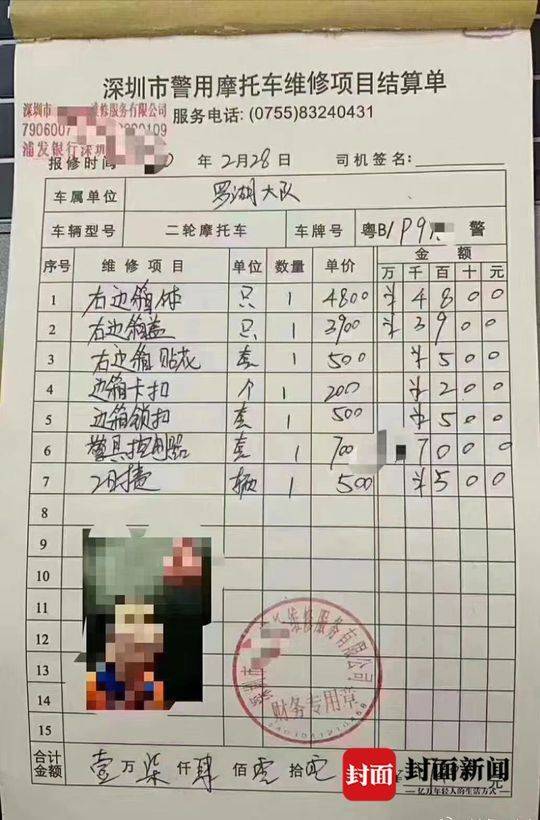 深圳市警用摩托车维修项目结算单
深圳市 维修服务有限公司
服务电话: (0755)83240431
7906007 0109
浦发银行深圳
报修时间 年 2月28日 司机签名:
车属单位 罗湖大队
车辆型号 二轮摩托车 车牌号 粤B1P9 警
序号 维修项目 单位 数量 单价 金额
万 千 百 十 元
1 右边箱体 只 1 4800 ¥ 4 8 0 0
2 右边箱盖 只 1 3900 ¥ 3 9 0 0
3 右边箱贴花 套 1 500 ¥ 5 0 0
4 边箱卡扣 个 1 200 ¥ 2 0 0
5 边箱锁扣 套 1 500 ¥ 5 0 0
6 警具控制器 套 1 700 7 0 0 0
7 工时费 辆 1 500 ¥ 5 0 0
8
9
10
11
12
13
14
15
维修服务有限公司
财务专用章
合计金额 壹万柒仟肆佰零拾零 元
封面 封面新闻
亿万年轻人的生活方式